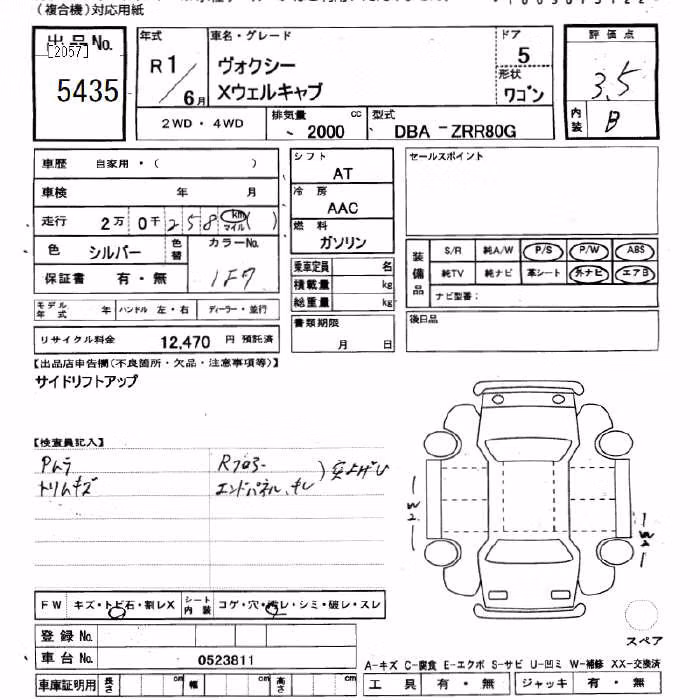 (複合機)対応用紙
出品No.
[2057]
5435
年式
R1/6月
車名・グレード
ヴォクシー
Xウェルキャブ
ドア
5
形状
ワゴン
2WD・4WD
排気量
2000 cc
型式
DBA -ZRR80G
評価点
3.5
内装
B
車歴 自家用・( )
車検 年 月
走行 2万 0千 2 5 8 km マイル ( )
色 シルバー 色替
カラーNo.
1F7
保証書 有・無
シフト
AT
冷房
AAC
燃料
ガソリン
乗車定員 名
積載量 kg
総重量 kg
セールスポイント
装備品
S/R 純A/W P/S P/W ABS
純TV 純ナビ 革シート 外ナビ エアB
ナビ型番:
モデル年式 年 ハンドル 左・右 ディーラー・並行
リサイクル料金 12,470 円 預託済
書類期限
月 日
後日品
【出品店申告欄(不良箇所・欠品・注意事項等)】
サイドリフトアップ
【検査員記入】
Pムラ
トリムキズ
Rフロアー
エンドパネル、キレ
)突上げひ
W2
W2
FW キズ・トビ石・割レX
シート内装 コゲ・穴・汚レ・シミ・破レ・スレ
登録No.
車台No. 0523811
車庫証明用 長さ cm 幅 cm 高さ cm
スペア
A-キズ C-腐食 E-エクボ S-サビ U-凹ミ W-補修 XX-交換済
工具 有・無 ジャッキ 有・無